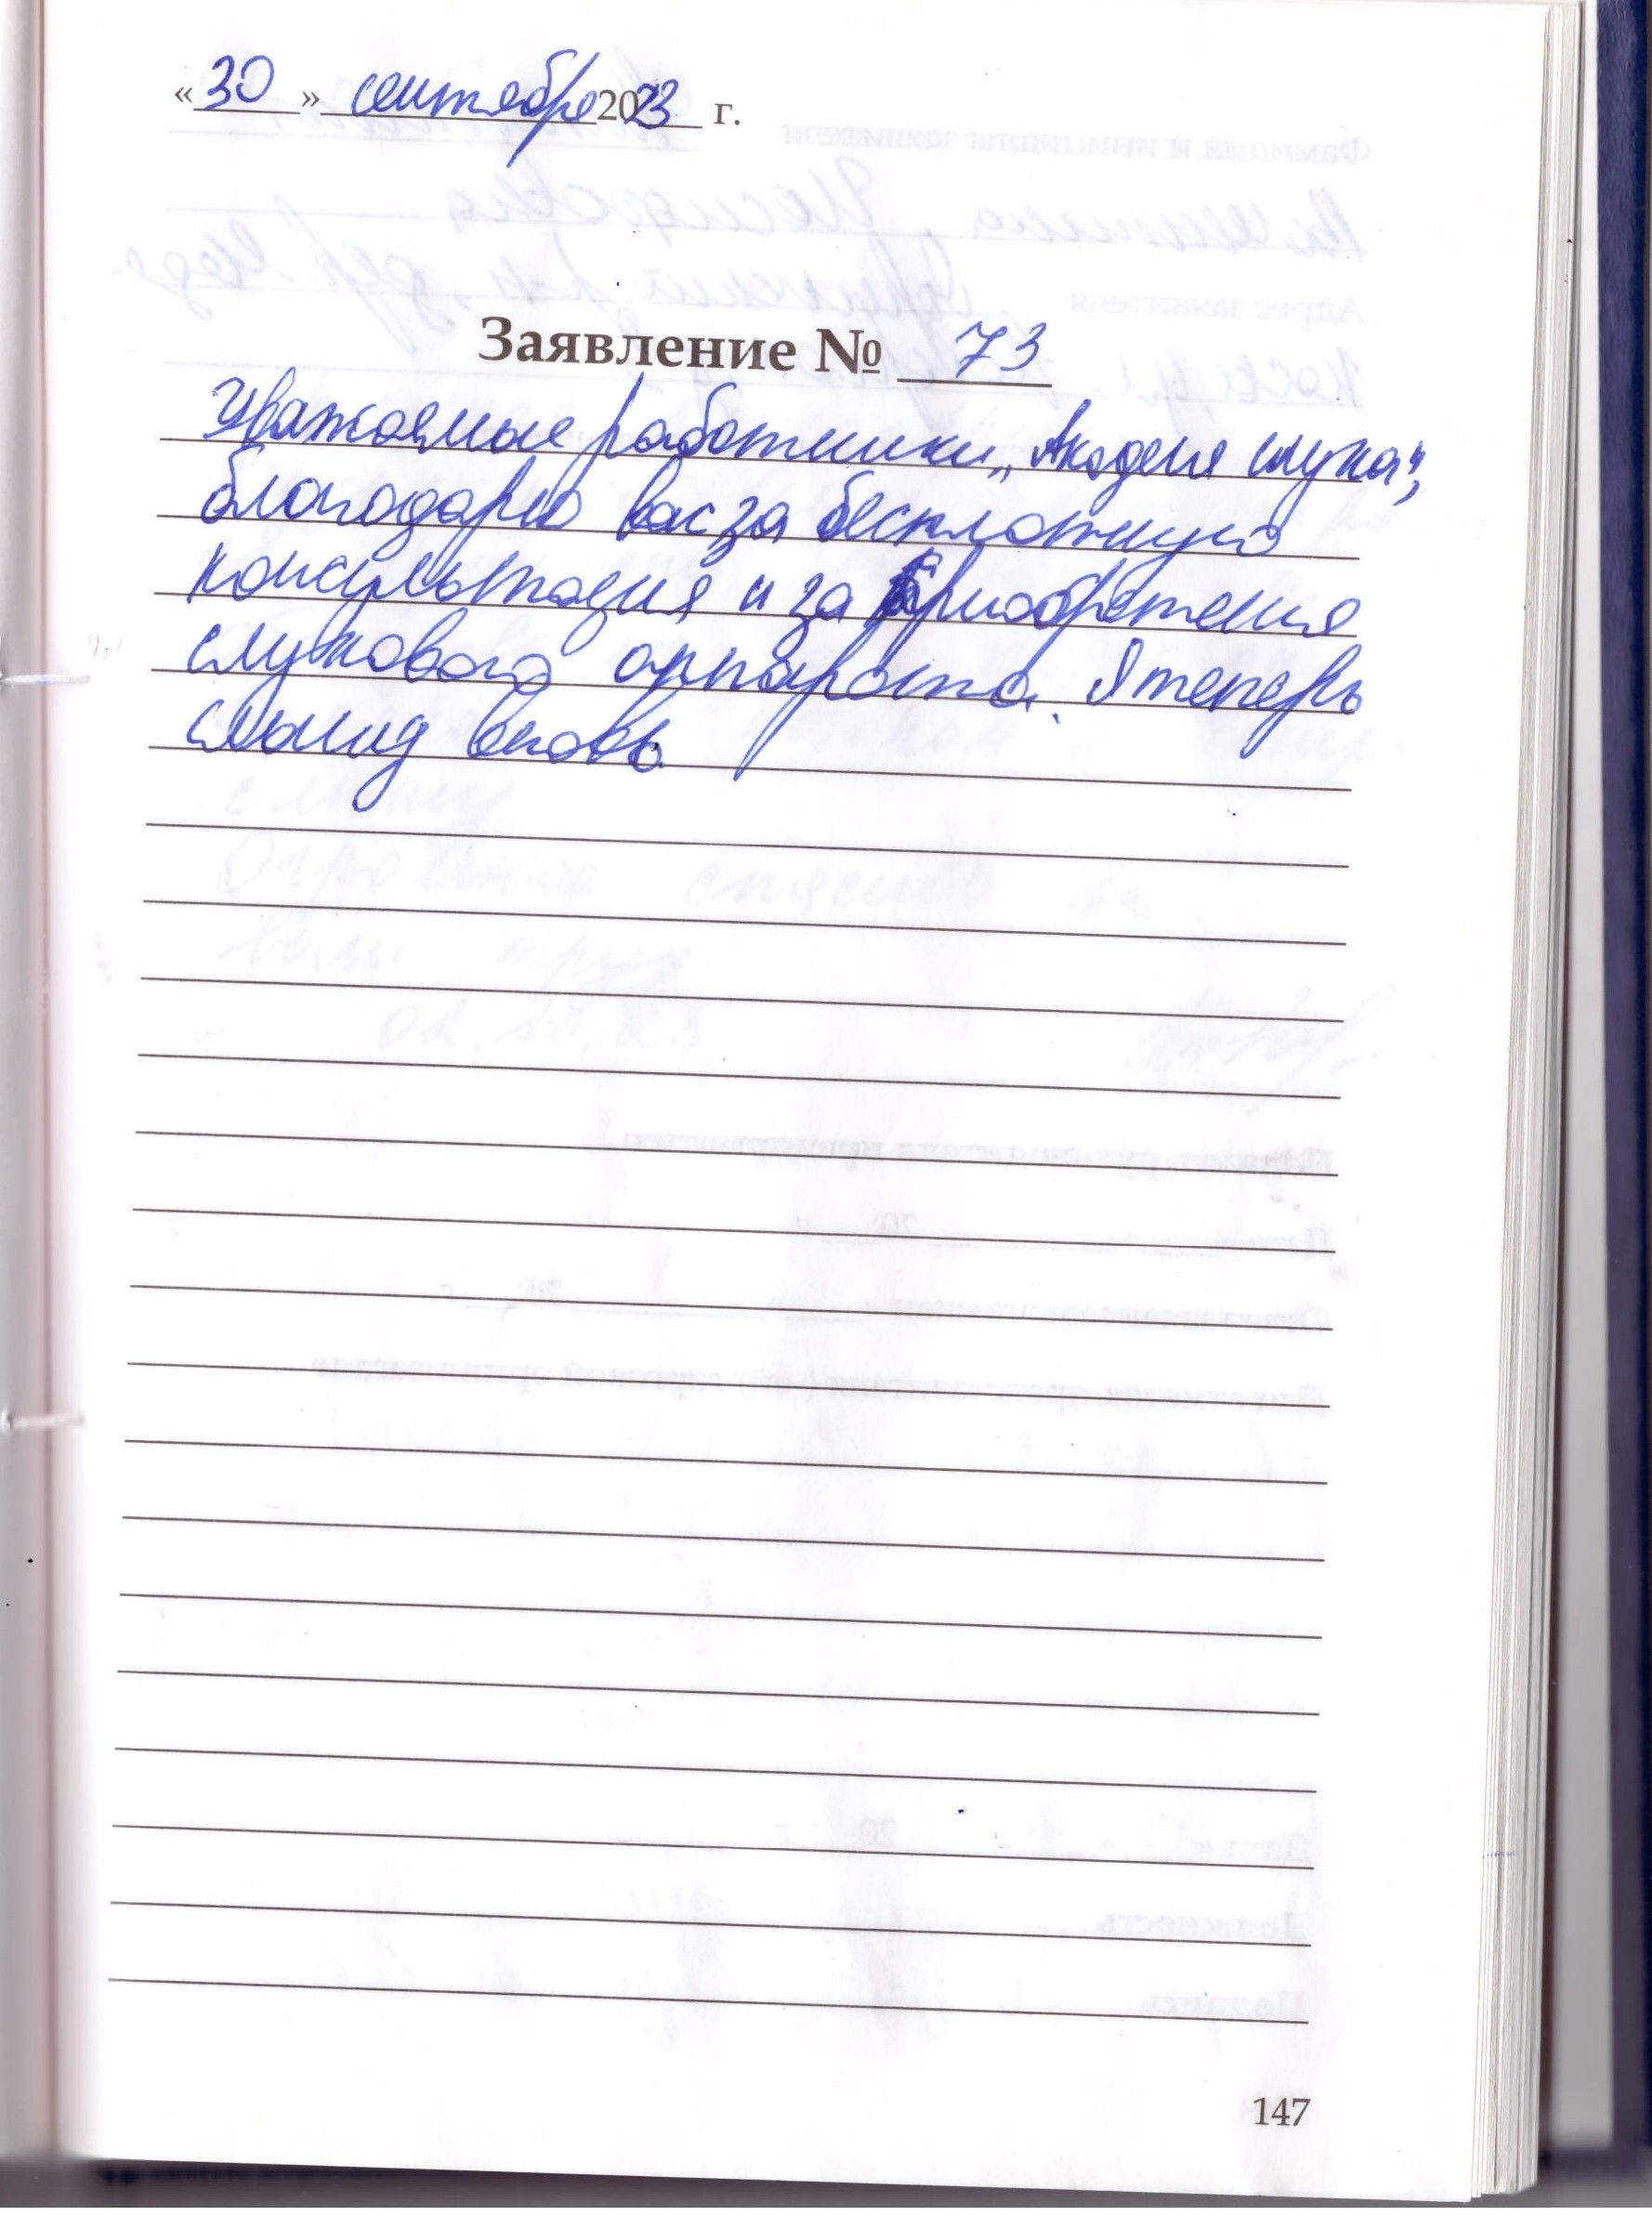 «30» сентября 2023 г.
Заявление № 73
Уважаемые работники „Академия слуха",
благодарю вас за бесплатную
консультация и за приобретения
слухового аппарата. Я теперь
слышу вновь.
147